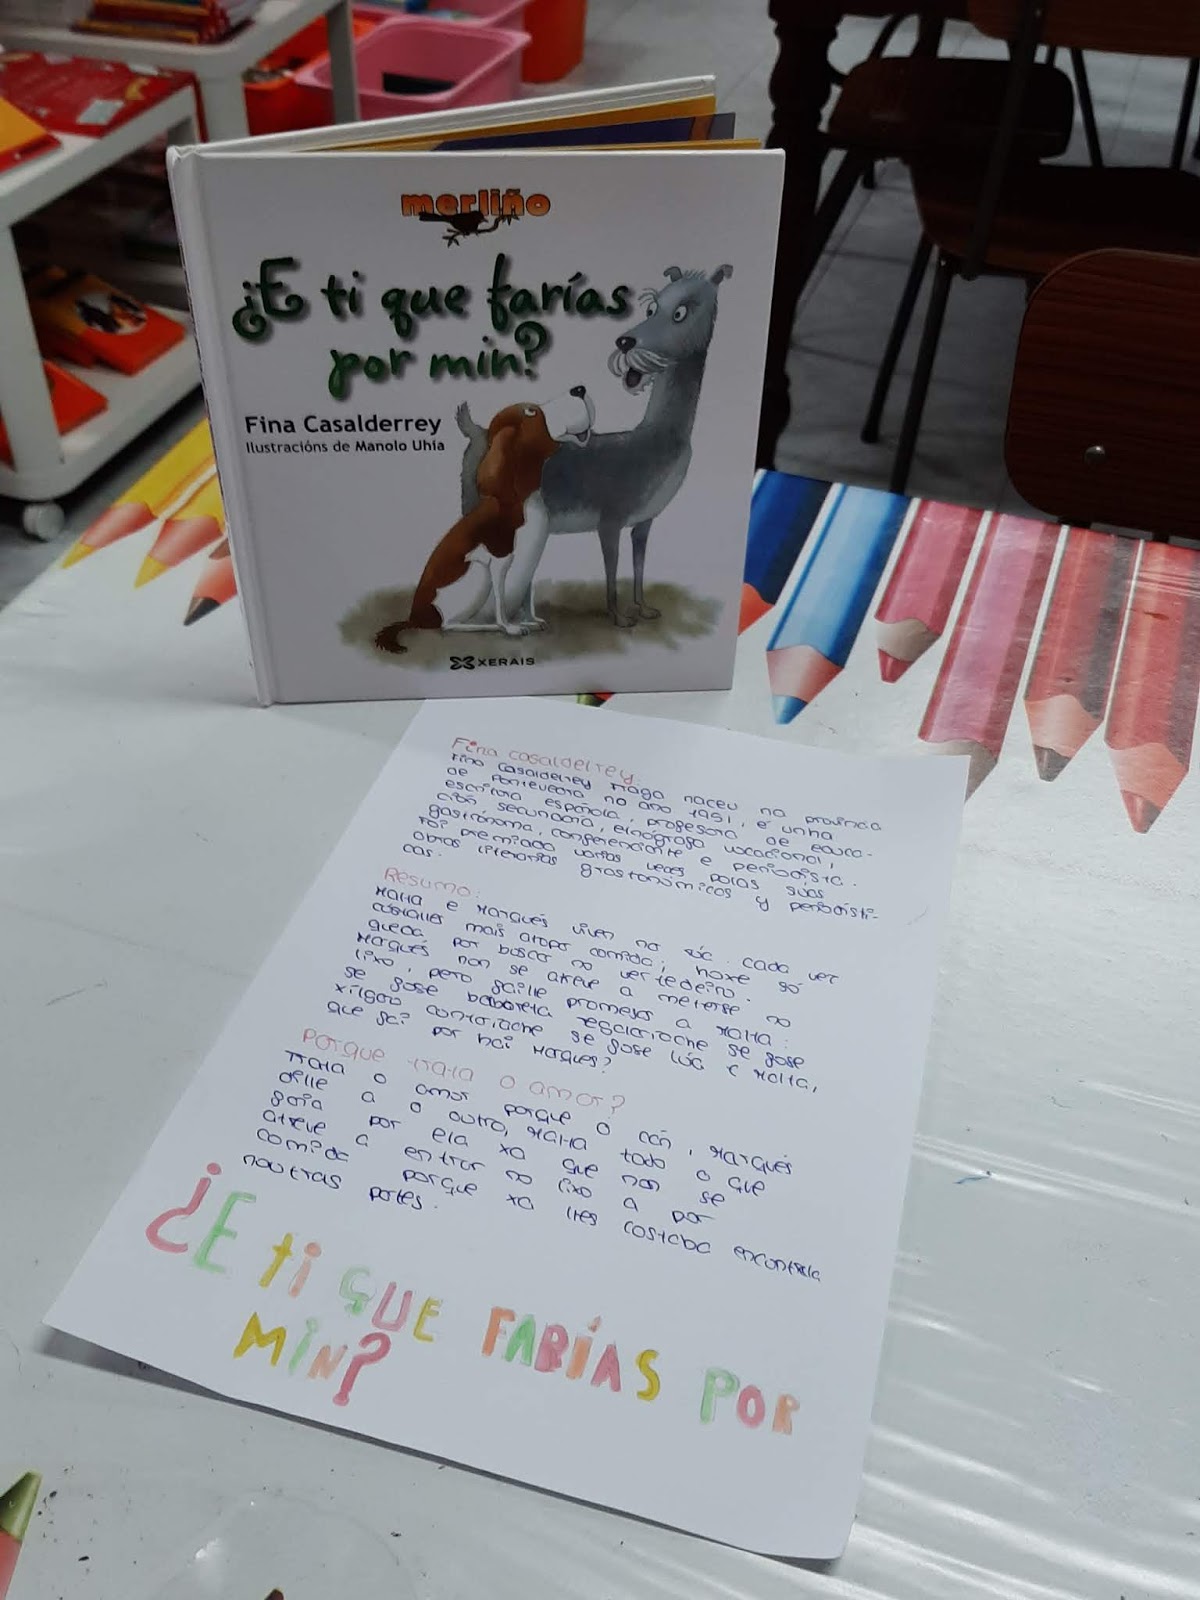 merliño
¿E ti que farías
por min?
Fina Casalderrey
Ilustracións de Manolo Uhía
XERAIS
Fina casalderrey.
Fina Casalderrey Fraga naceu na provincia
de Pontevedra no ano 1951, é unha
escritora española, profesora de educa-
ción secundaria, etnógrafa vocacional,
gastrónoma, conferenciante e periodista.
Foi premiada varias veces polas súas
obras literarias grastonómicas y periodísti-
cas.
Resumo:
Malta e Marqués viven na rúa. cada vez
cústalles mais atopar comida; hoxe só
queda por buscar no vertedeiro.
Marqués non se atreve a meterse no
lixo, pero faille promesas a Malta:
se fose bolboreta regalaríache se fose
xílgaro contaríache se fose lúa E Malta,
que fai por hai Marques?
Porque trata o amor?
Trata o amor porque o can, Marqués
dille a o outro, Malta todo o que
faría por ela xa que non se
atreve a entrar no lixo a por
comida porque xa lles costaba encontrala
noutras partes.
¿E ti QUE FARÍAS POR
MIN?